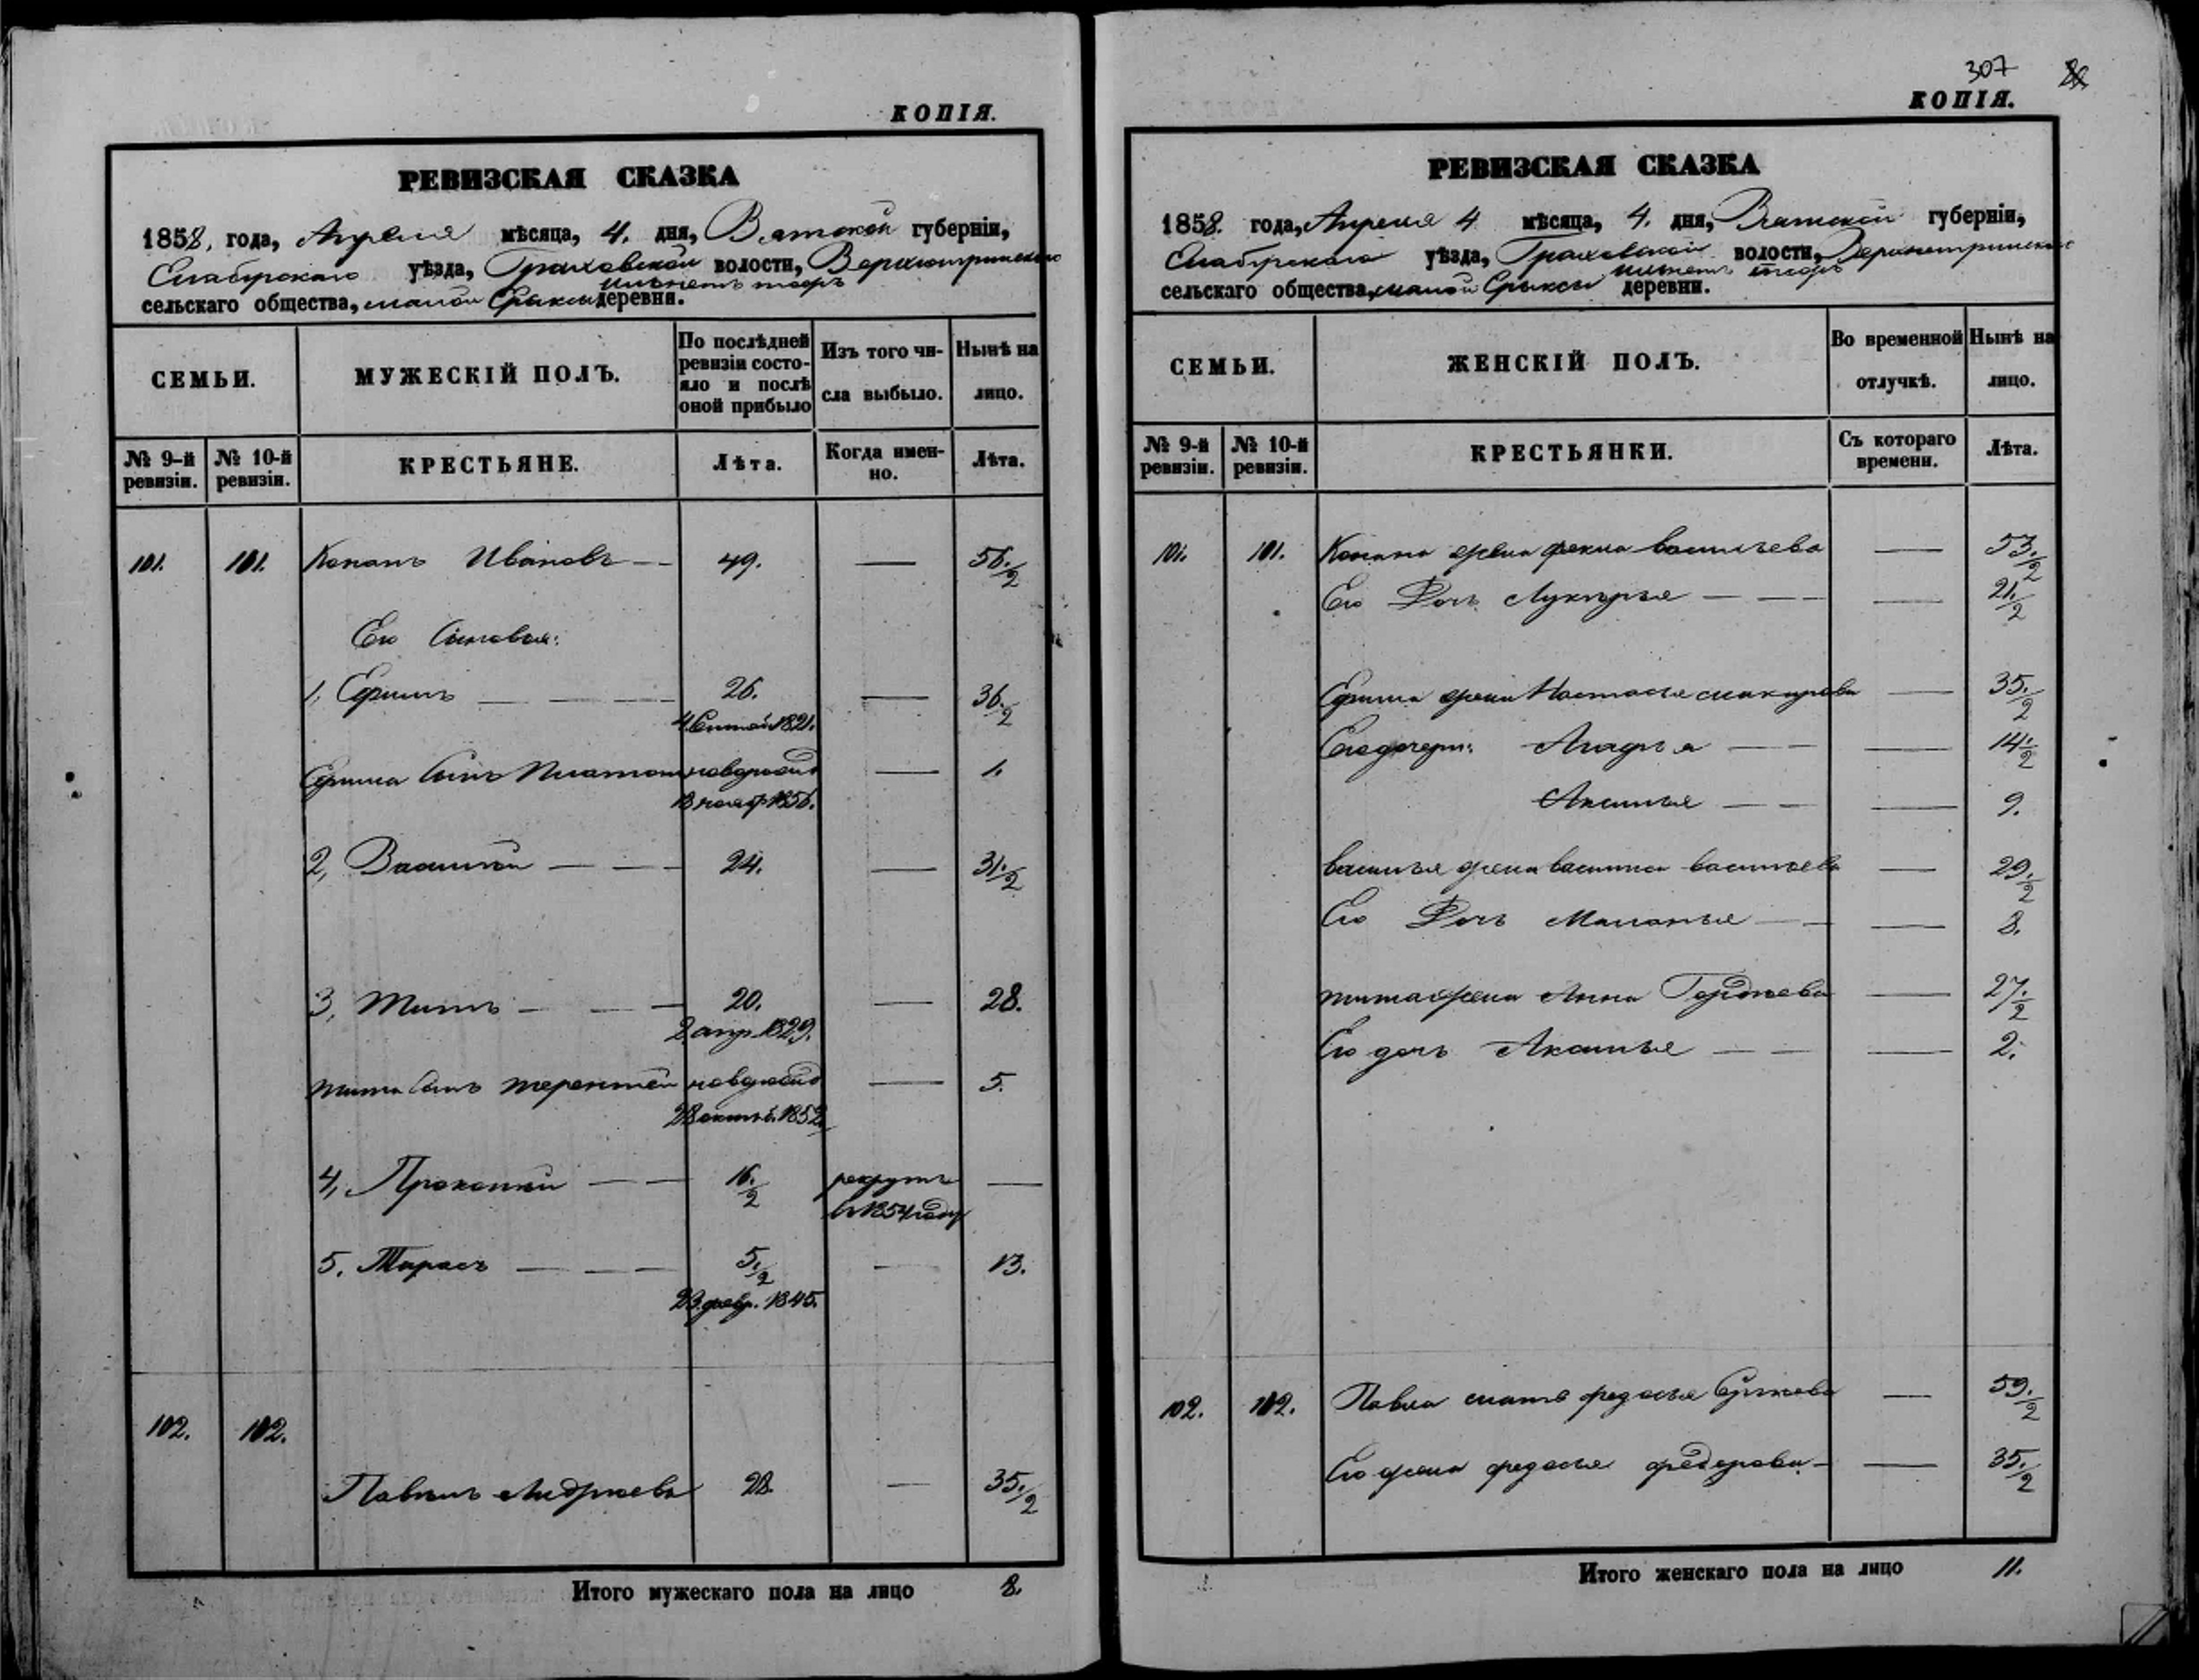 КОПІЯ.
РЕВИЗСКАЯ СКАЗКА
1858, года, Апреля мѣсяца, 4. дня, Вятской губерніи,
Елабужскаго уѣзда, Граховской волости,
сельскаго общества, малой деревни.
СЕМЬИ.
МУЖЕСКІЙ ПОЛЪ.
По послѣдней ревизіи состо-
яло и послѣ оной прибыло
Изъ того чи-
сла выбыло.
Нынѣ на
лицо.
№ 9-й ревизіи.
№ 10-й ревизіи.
КРЕСТЬЯНЕ.
Лѣта.
Когда имен-
но.
Лѣта.
101. 101. Конанъ Ивановъ — 49. — 56. 1/2
Его Сыновья:
1, Ефимъ — — — 26. — 36. 1/2
1821.
Ефима Сынъ Платонъ новорожд — 1.
13 нояб. 1856.
2, Василий — — — 24. — 31. 1/2
3, Титъ — — — 20. — 28.
2 апр. 1829.
Тита Сынъ Терентей новорожд — 5.
28 октяб. 1852.
4, Прокопий — — 16. 1/2 рекрутъ —
въ 1854 году
5. Тарасъ — — — 5. 1/2 — 13.
23 февр. 1845.
102. 102.
Павелъ Андреевъ 28. — 35. 1/2
Итого мужескаго пола на лицо 8.
307
КОПІЯ.
РЕВИЗСКАЯ СКАЗКА
1858. года, Апреля 4 мѣсяца, 4. дня, Вятской губерніи,
Елабужскаго уѣзда, Граховской волости,
сельскаго общества, малой деревни.
СЕМЬИ.
ЖЕНСКІЙ ПОЛЪ.
Во временной
отлучкѣ.
Нынѣ на
лицо.
№ 9-й ревизіи.
№ 10-й ревизіи.
КРЕСТЬЯНКИ.
Съ котораго
времени.
Лѣта.
101. 101. Конана жена Фекла Васильева — 53. 1/2
Его Дочь Лукерья — — — 21. 1/2
Ефима жена Настасья — 35. 1/2
Его дочери: — — — 14. 1/2
Аксинья — — — 9.
Василья жена Василиса Васильева — 29. 1/2
Его Дочь Маланья — — — 8.
Тита жена Анна Гордеева — 27. 1/2
Его дочь Аксинья — — — 2.
102. 102. Павла мать Федосья — 59. 1/2
Его жена Федосья Федорова — — 35. 1/2
Итого женскаго пола на лицо 11.